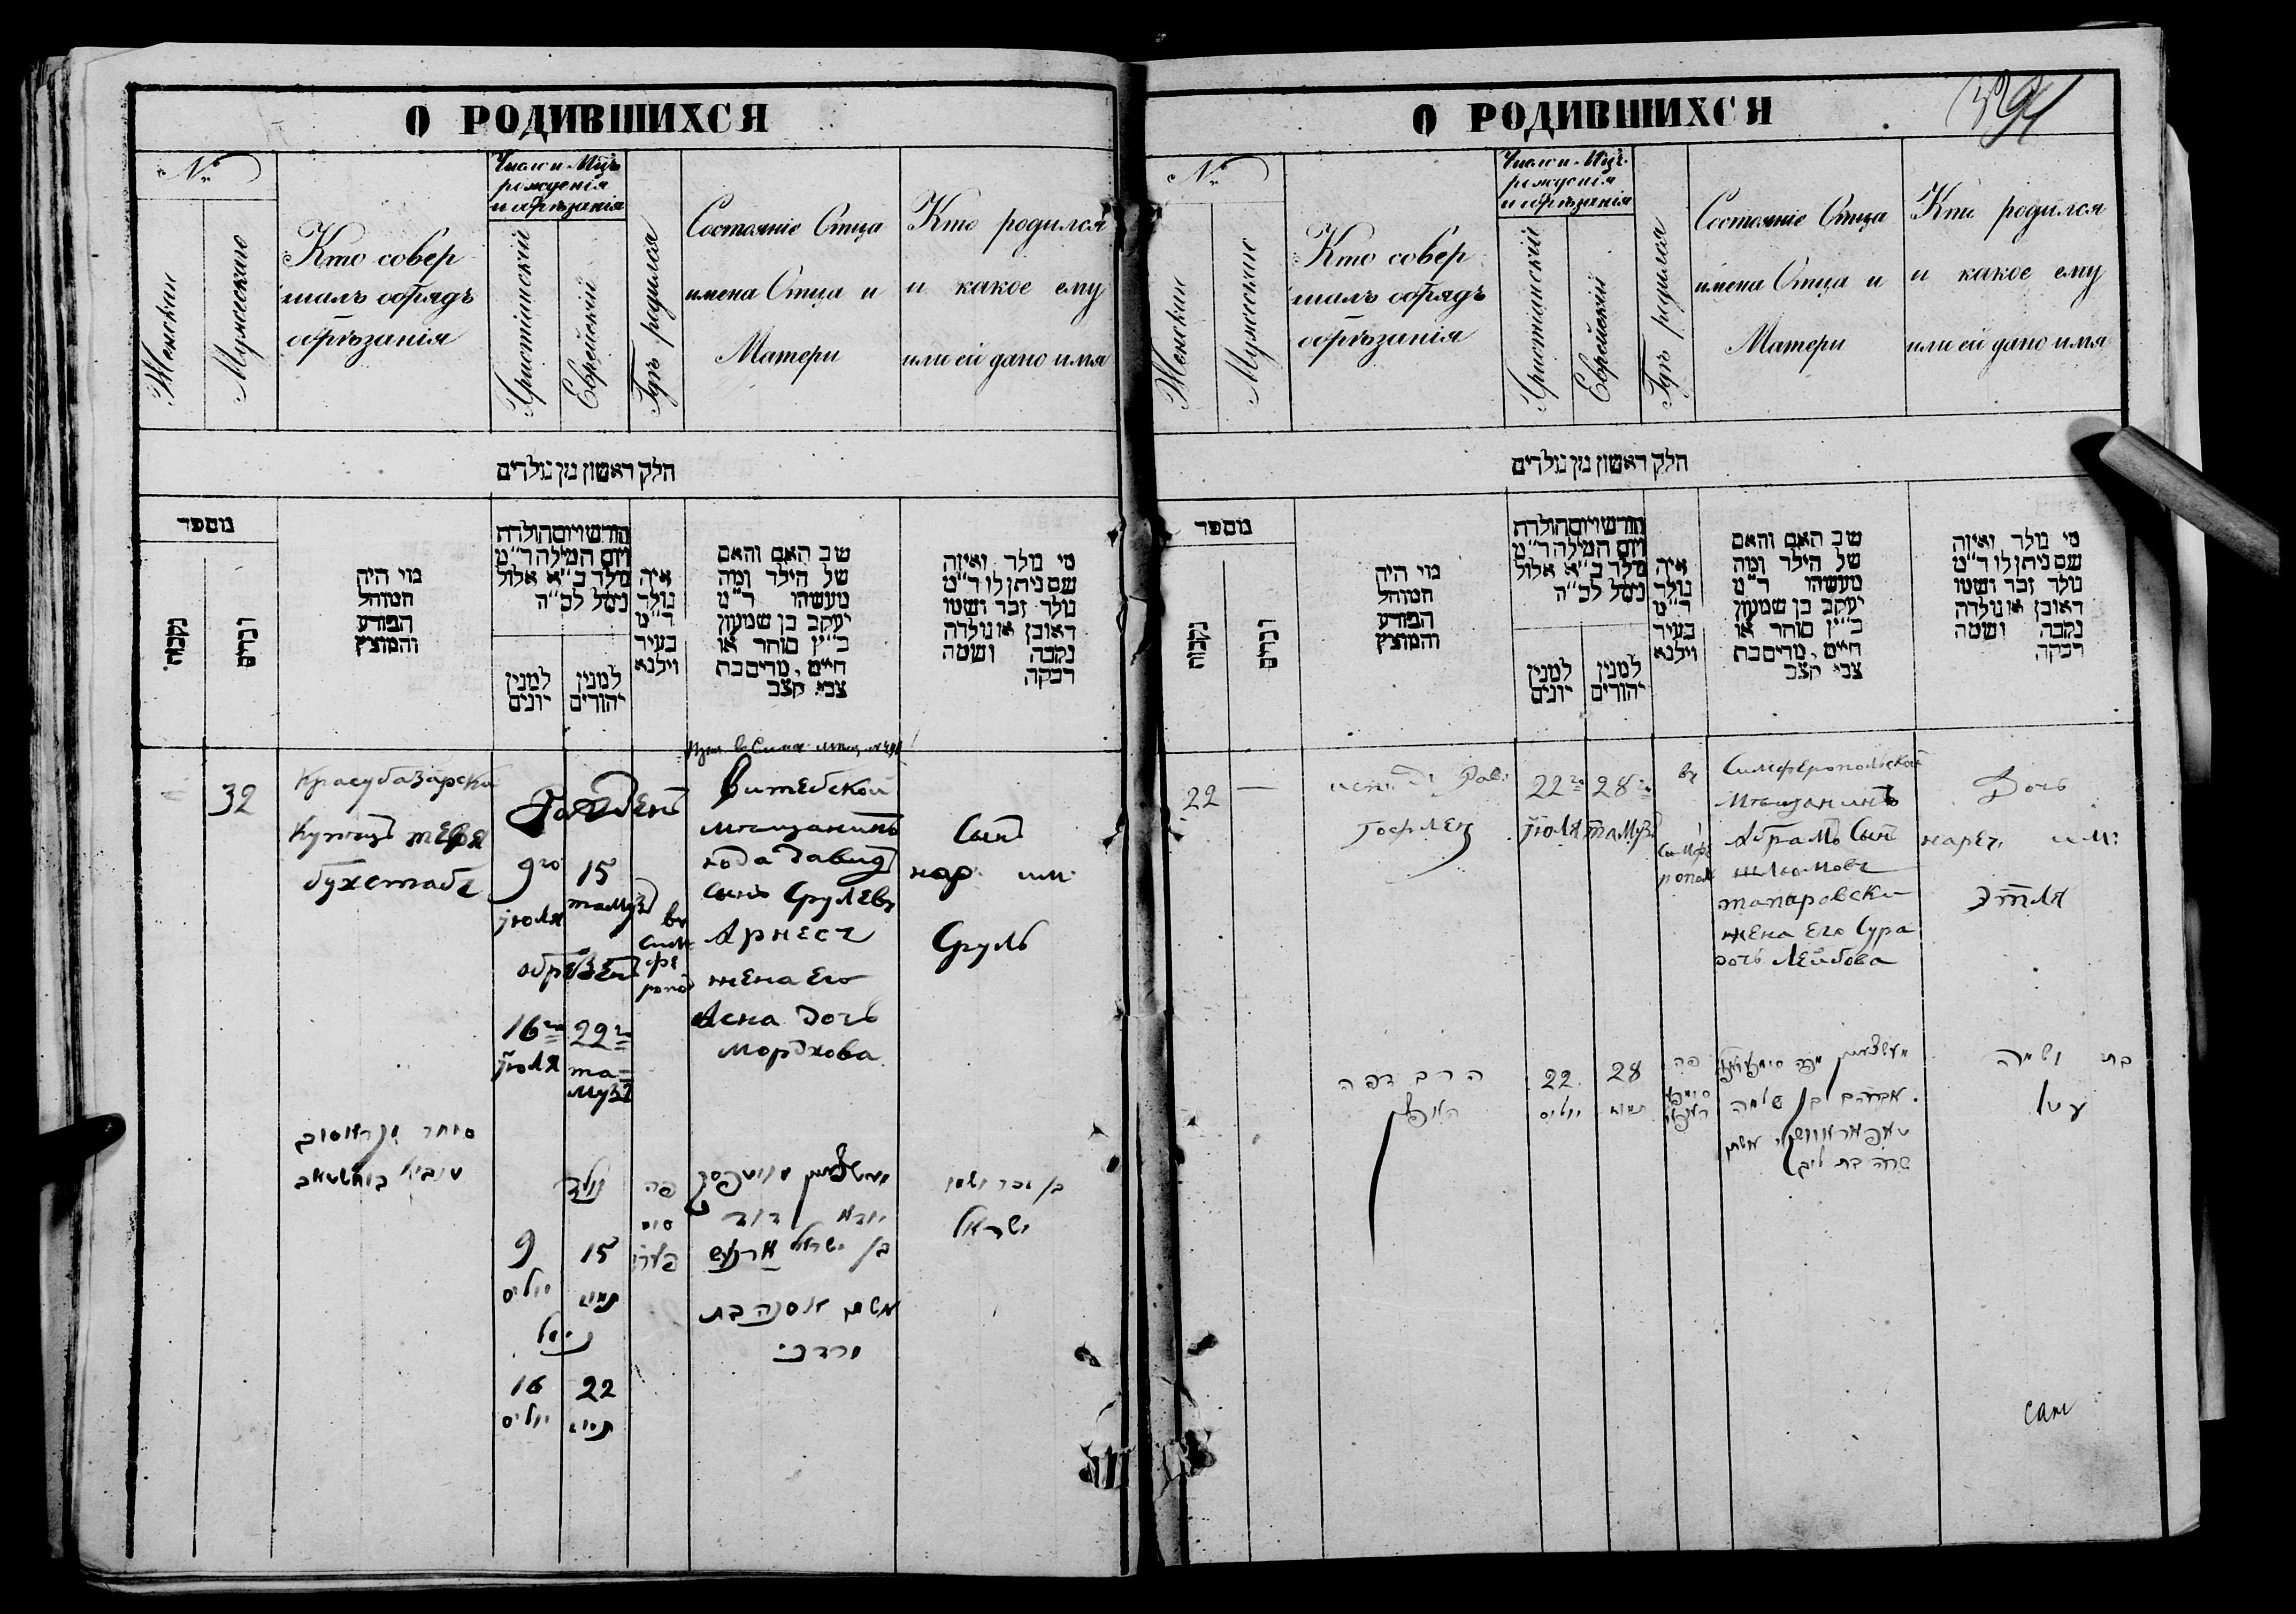 О РОДИВШИХСЯ
№
Женскии
Мужескии
Кто совер
шалъ обрядъ
обрѣзанія
Число и Мцъ
рожденія
и обрѣзанія
Христіанскій
Еврейскій
Гдѣ родился
Состояніе Отца
имена Отца и
Матери
Кто родился
и какое ему
или ей дано имя
חלק ראשון מן נולדים
מספר
נקבות
זכרים
מי היה
המוהל
הפורע
והמוצץ
חודש ויום הולדת
ויום המילה ר״מ
נולד ב״א אלול
נימל לכ״ה
למנין
יונים
למנין
יהודים
איה
נולד
ר״מ
בעיר
ווילנא
שם האב והאם
של הילד ומה
מעשהו ר״מ
יעקב בן שמעון
כ״ץ סוחר או
חיים, מרים בת
צבי קצב
מי נולד ואיזה
שם ניתן לו ר״מ
נולד זכר ושמו
ראובן או נולדה
נקבה ושמה
רבקה
32
Красубазарски
Купецъ
бухстабъ
Рожденъ
9го 15
Іюля тамуз
обрѣзенъ
16го 22го
Іюля та=
музъ
въ
Симфе
ропол
Витебской
мѣщанинъ
Юда Давидъ
сынъ Срулевъ
Арнесъ
жена Его
Асна дочь
Мордхова
Сынъ
нар. им.
Сруль
סוחר
נולד
9 15
יוליס תמוז
נימול
16 22
יוליס תמוז
פה
יודא דוד
בן ישראל ארנעס
אשתו אסנה בת
מרדכי
בן זכר ושמו
ישראל
О РОДИВШИХСЯ
№
Женскии
Мужескии
Кто совер
шалъ обрядъ
обрѣзанія
Число и Мцъ
рожденія
и обрѣзанія
Христіанскій
Еврейскій
Гдѣ родился
Состояніе Отца
имена Отца и
Матери
Кто родился
и какое ему
или ей дано имя
חלק ראשון מן נולדים
מספר
נקבות
זכרים
מי היה
המוהל
הפורע
והמוצץ
חודש ויום הולדת
ויום המילה ר״מ
נולד ב״א אלול
נימל לכ״ה
למנין
יונים
למנין
יהודים
איה
נולד
ר״מ
בעיר
ווילנא
שם האב והאם
של הילד ומה
מעשהו ר״מ
יעקב בן שמעון
כ״ץ סוחר או
חיים, מרים בת
צבי קצב
מי נולד ואיזה
שם ניתן לו ר״מ
נולד זכר ושמו
ראובן או נולדה
נקבה ושמה
רבקה
22 —
22го 28го
Іюля тамузъ
въ
Симфе
рополь
Симферопольской
Мѣщанинъ
Абрамъ Сынъ
Шлюмовъ
тапаровски
жена Его Сура
дочь Лейбова
Дочь
нареч. им:
Этля
הרב דפה
22 28
יוליס תמוז
פה
אברהם בן שלמה
אשתו
שרה בת ליב
בת ושמה
עטל